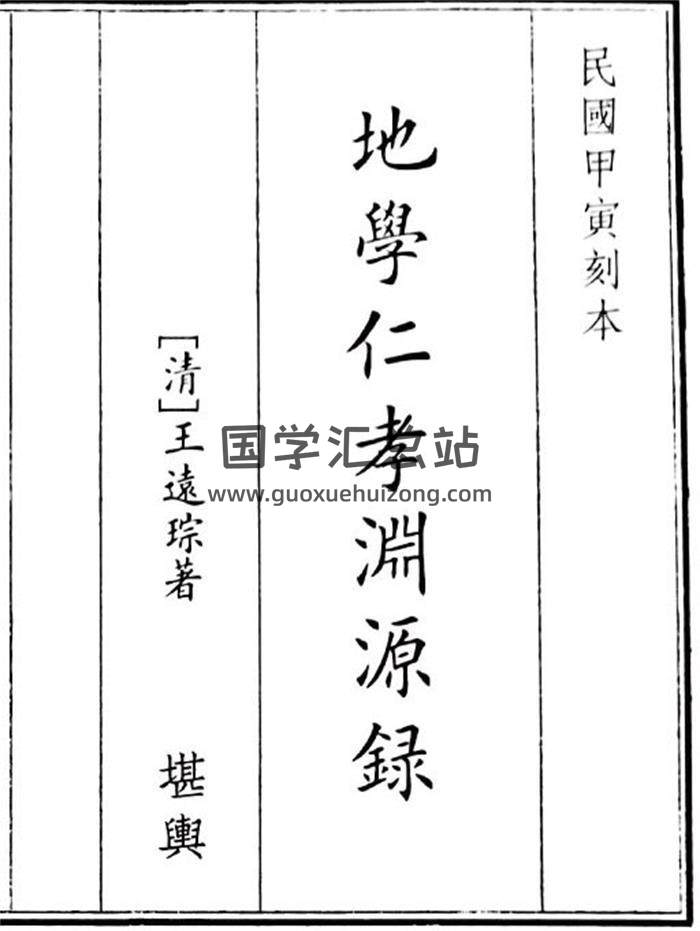 民國甲寅刻本
地學仁孝淵源録
[清]王遠琮著
堪輿
国学汇总站
www.guoxuehuizong.com